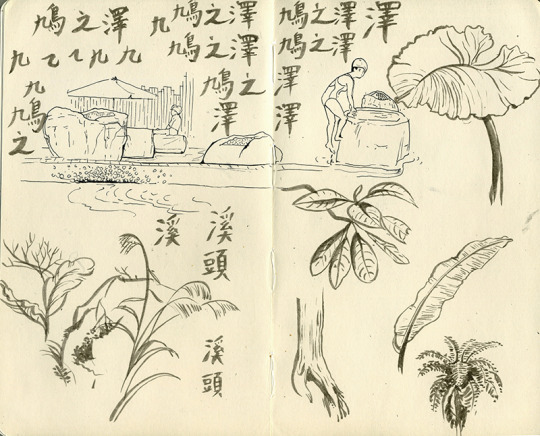 鳩之澤
九九九
九
鳩
之
九
鳩之澤
鳩之澤
鳩之
澤
鳩之澤
澤
鳩之澤
澤
澤
溪
溪頭
溪頭